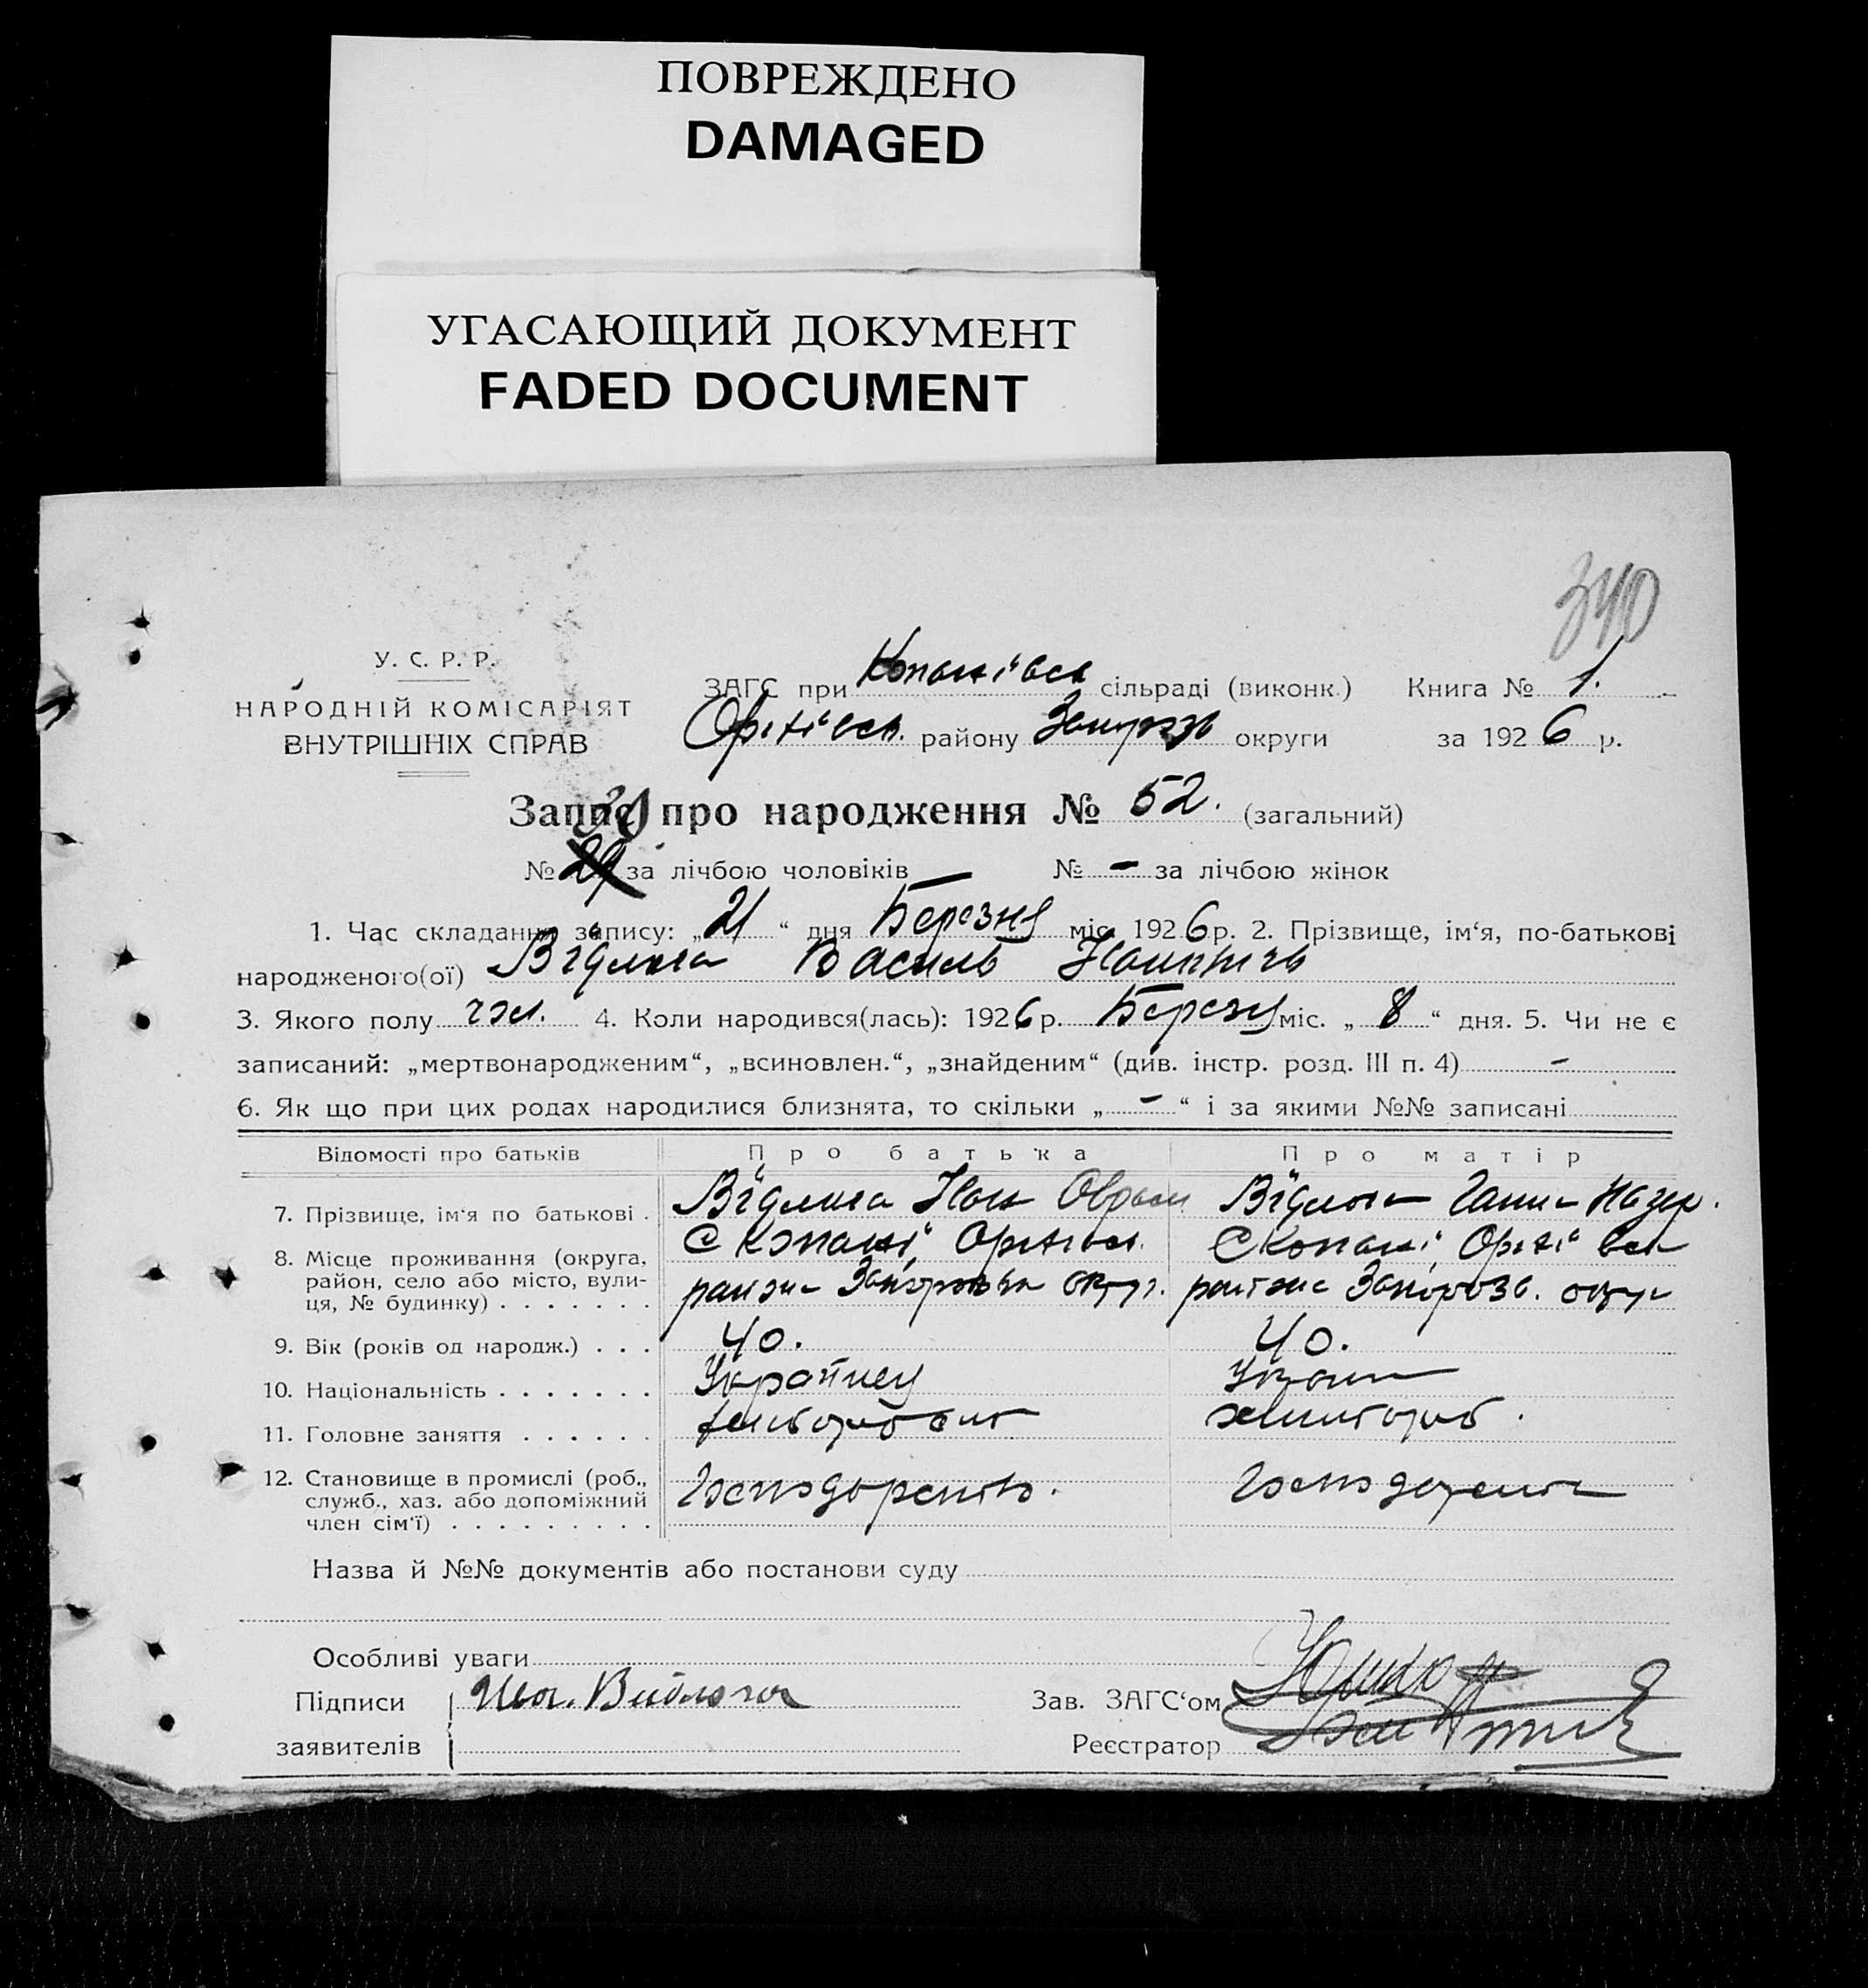 ПОВРЕЖДЕНО
DAMAGED
УГАСАЮЩИЙ ДОКУМЕНТ
FADED DOCUMENT
340
У. С. Р. Р.
НАРОДНІЙ КОМІСАРІЯТ
ВНУТРІШНІХ СПРАВ
ЗАГС при Копанівск сільраді (виконк.) Книга № 1.
Оріхівск. району Запоріз округи за 1926 р.
Запис про народження № 52. (загальний)
30
№ 29 за лічбою чоловіків № - за лічбою жінок
1. Час складання запису: „21“ дня Березня міс. 1926 р. 2. Прізвище, ім‘я, по-батькові
народженого(ої) Відлога Василь Іванович
3. Якого полу чол. 4. Коли народився(лась): 1926 р. Березня міс. „8“ дня. 5. Чи не є
записаний: „мертвонародженим“, „всиновлен.“, „знайденим“ (див. інстр. розд. III п. 4) -
6. Як що при цих родах народилися близнята, то скільки „-“ і за якими №№ записані
Відомості про батьків Про батька Про матір
7. Прізвище, ім‘я по батькові . Відлога Іван Оврам Відлога Ганна Назар.
8. Місце проживання (округа, район, село або місто, вулиця, № будинку) С Копані Оріхівск. С Копані Оріхівск
района Запорозька округ. района Запорозь. округ
9. Вік (років од народж.) . . . 40. 40.
10. Національність . . . . . . . Українец Україн
11. Головне заняття . . . . . .
12. Становище в промислі (роб., служб., хаз. або допоміжний член сім‘ї) . . . . . . . . .
Назва й №№ документів або постанови суду
Особливі уваги
Підписи Ива. Видлога Зав. ЗАГС‘ом
заявителів Реєстратор